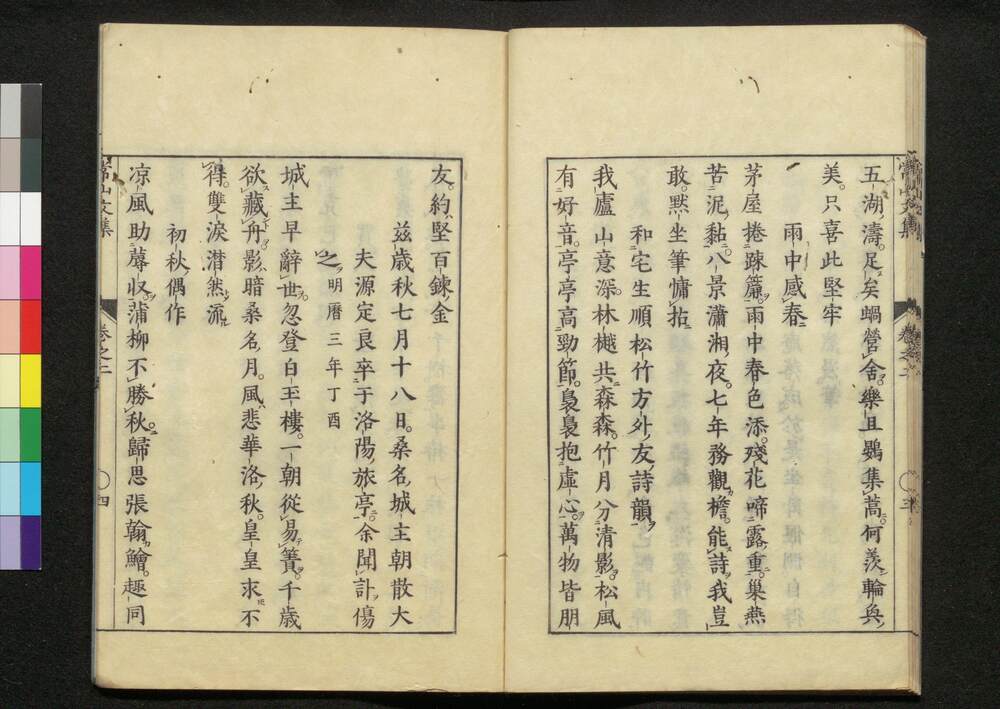 五湖濤。足矣蝸營舍。樂且鷃集蒿。何羨輪奐
美。只喜此堅牢
雨中感春
茅屋捲疎簾。雨中春色添。殘花啼露重。巢燕
苦泥黏。八景瀟湘夜。七年務觀檐。能詩我豈
敢。默坐筆慵拈
和宅生順松竹方外友詩韻
我廬山意深。林樾共森森。竹月分清影。松風
有好音。亭亭高勁節。裊裊抱虛心。萬物皆朋
友。約堅百鍊金
玆歳秋七月十八日。桑名城主朝散大
夫源定良卒于洛陽旅亭。余聞訃傷
之明曆三年丁酉
城主早辭世。忽登白玉樓。一朝從易簀。千歳
欲藏舟。影暗桑名月。風悲華洛秋。皇皇求不
得。雙淚潸然流
初秋偶作
凉風助蓐收。蒲柳不勝秋。歸思張翰鱠。趣同
常山文集
卷之二
四